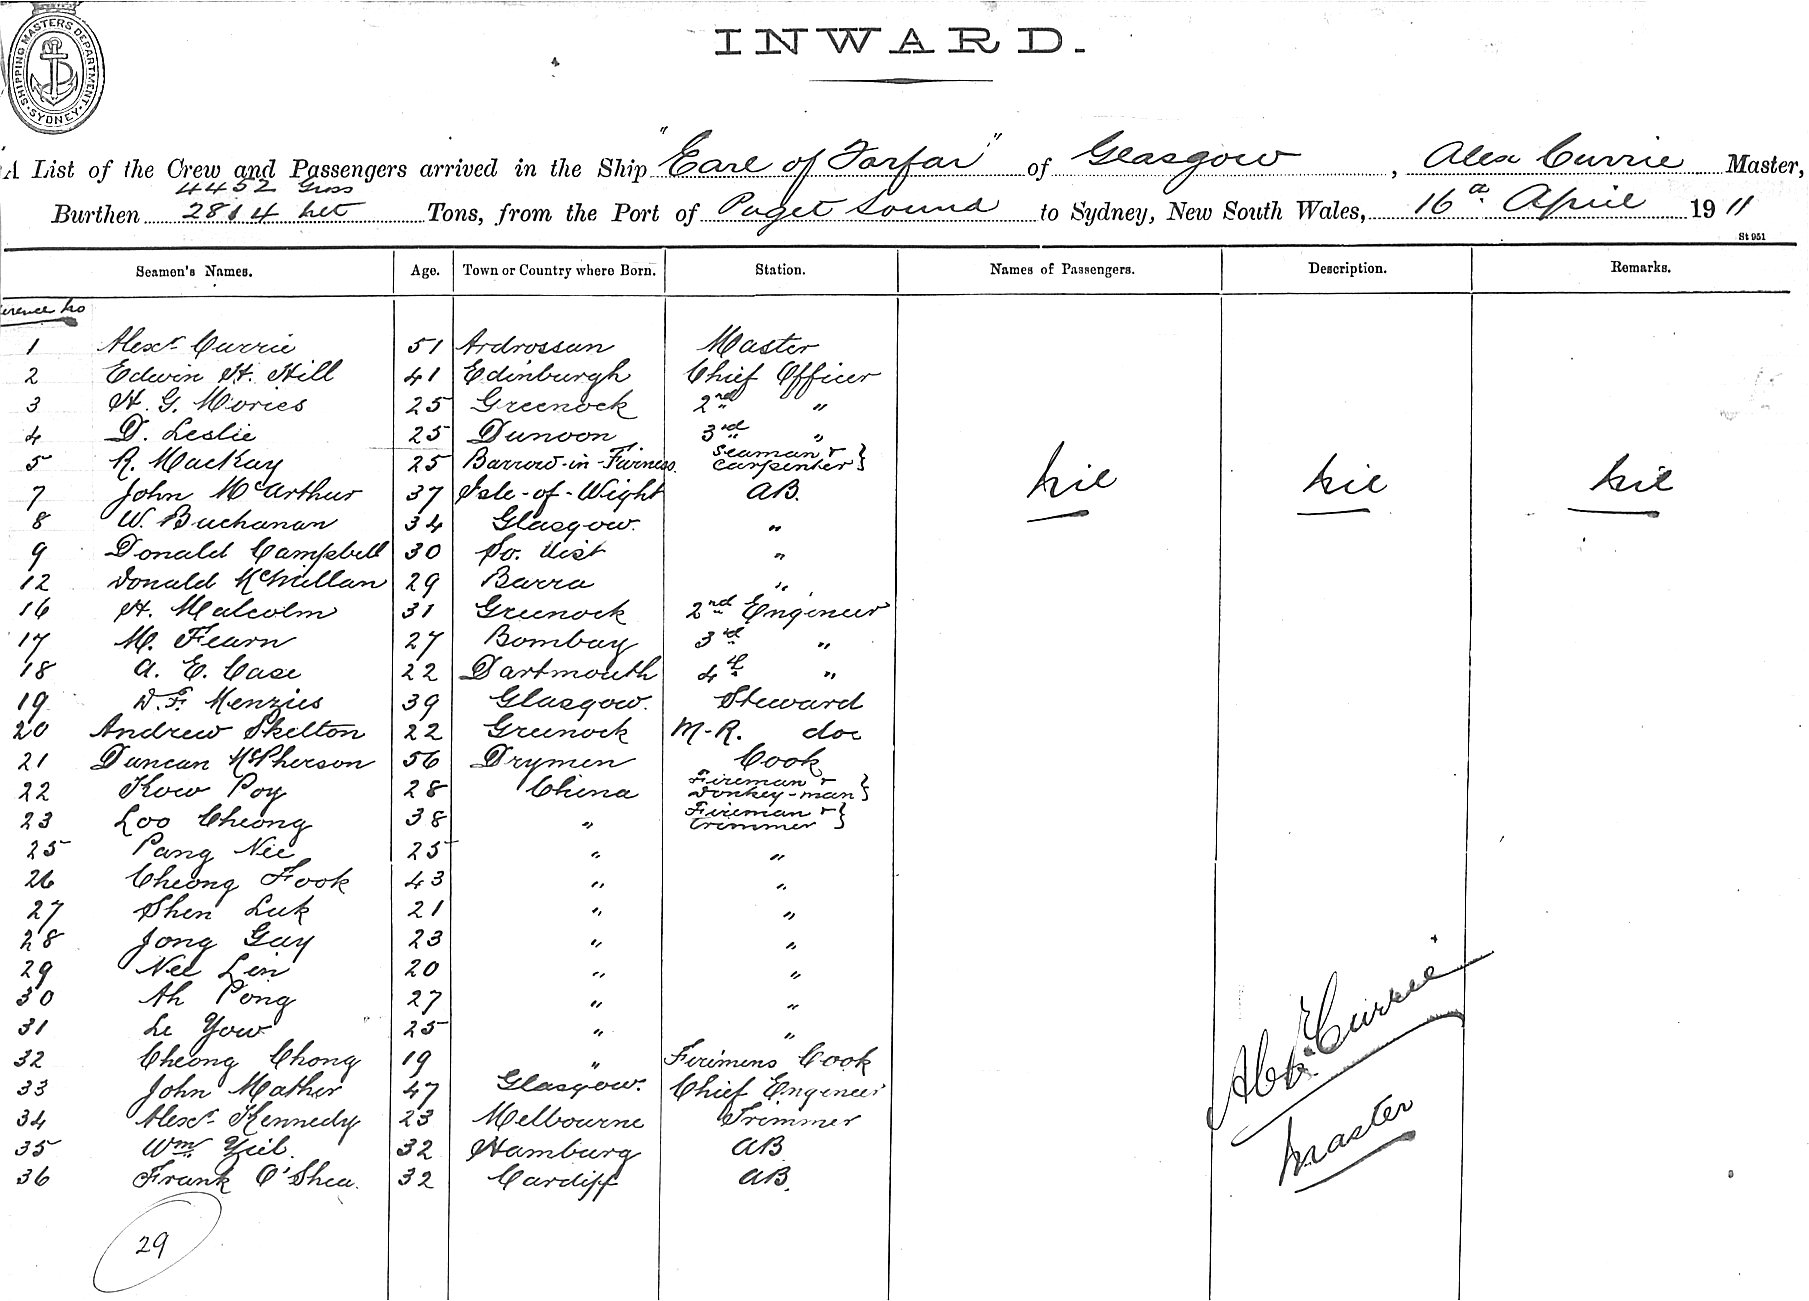 SHIPPING MASTERS DEPARTMENT SYDNEY
INWARD.
A List of the Crew and Passengers arrived in the Ship "Earl of Forfar" of Glasgow, Alex Currie Master,
4452 Gross
Burthen 2814 net Tons, from the Port of Puget Sound to Sydney, New South Wales, 16th April 1911
St 951
Seamen's Names. Age. Town or Country where Born. Station. Names of Passengers. Description. Remarks.
erence No
1 Alexr Currie 51 Ardrossan Master
2 Edwin H. Hill 41 Edinburgh Chief Officer
3 H. G. Mories 25 Greenock 2nd "
4 D. Leslie 25 Dunoon 3rd "
5 R. MacKay 25 Barrow-in-Furness. Seaman & Carpenter }
7 John McArthur 37 Isle-of-Wight AB. Nil Nil Nil
8 W. Buchanan 34 Glasgow. "
9 Donald Campbell 30 So. Uist "
12 Donald McMillan 29 Barra "
16 H. Malcolm 31 Greenock 2nd Engineer
17 M. Fearn 27 Bombay 3rd "
18 A. E. Case 22 Dartmouth 4th "
19 D. F. Menzies 39 Glasgow. Steward
20 Andrew Skelton 22 Greenock M-R. do
21 Duncan McPherson 56 Drymen Cook
22 Kow Poy 28 China Fireman & Donkey-man }
23 Loo Cheong 38 " Fireman & Trimmer }
25 Pang Nee 25 " "
26 Cheong Fook 43 " "
27 Shen Luk 21 " "
28 Jong Gay 23 " "
29 Nee Lin 20 " "
30 Ah Pong 27 " "
31 Le Yow 25 " "
32 Cheong Chong 19 " Firemens Cook
33 John Mather 47 Glasgow. Chief Engineer
34 Alexr Kennedy 23 Melbourne Trimmer
35 Wm Yiel. 32 Hamburg AB
36 Frank O'Shea. 32 Cardiff AB.
Alexr Currie
Master
29